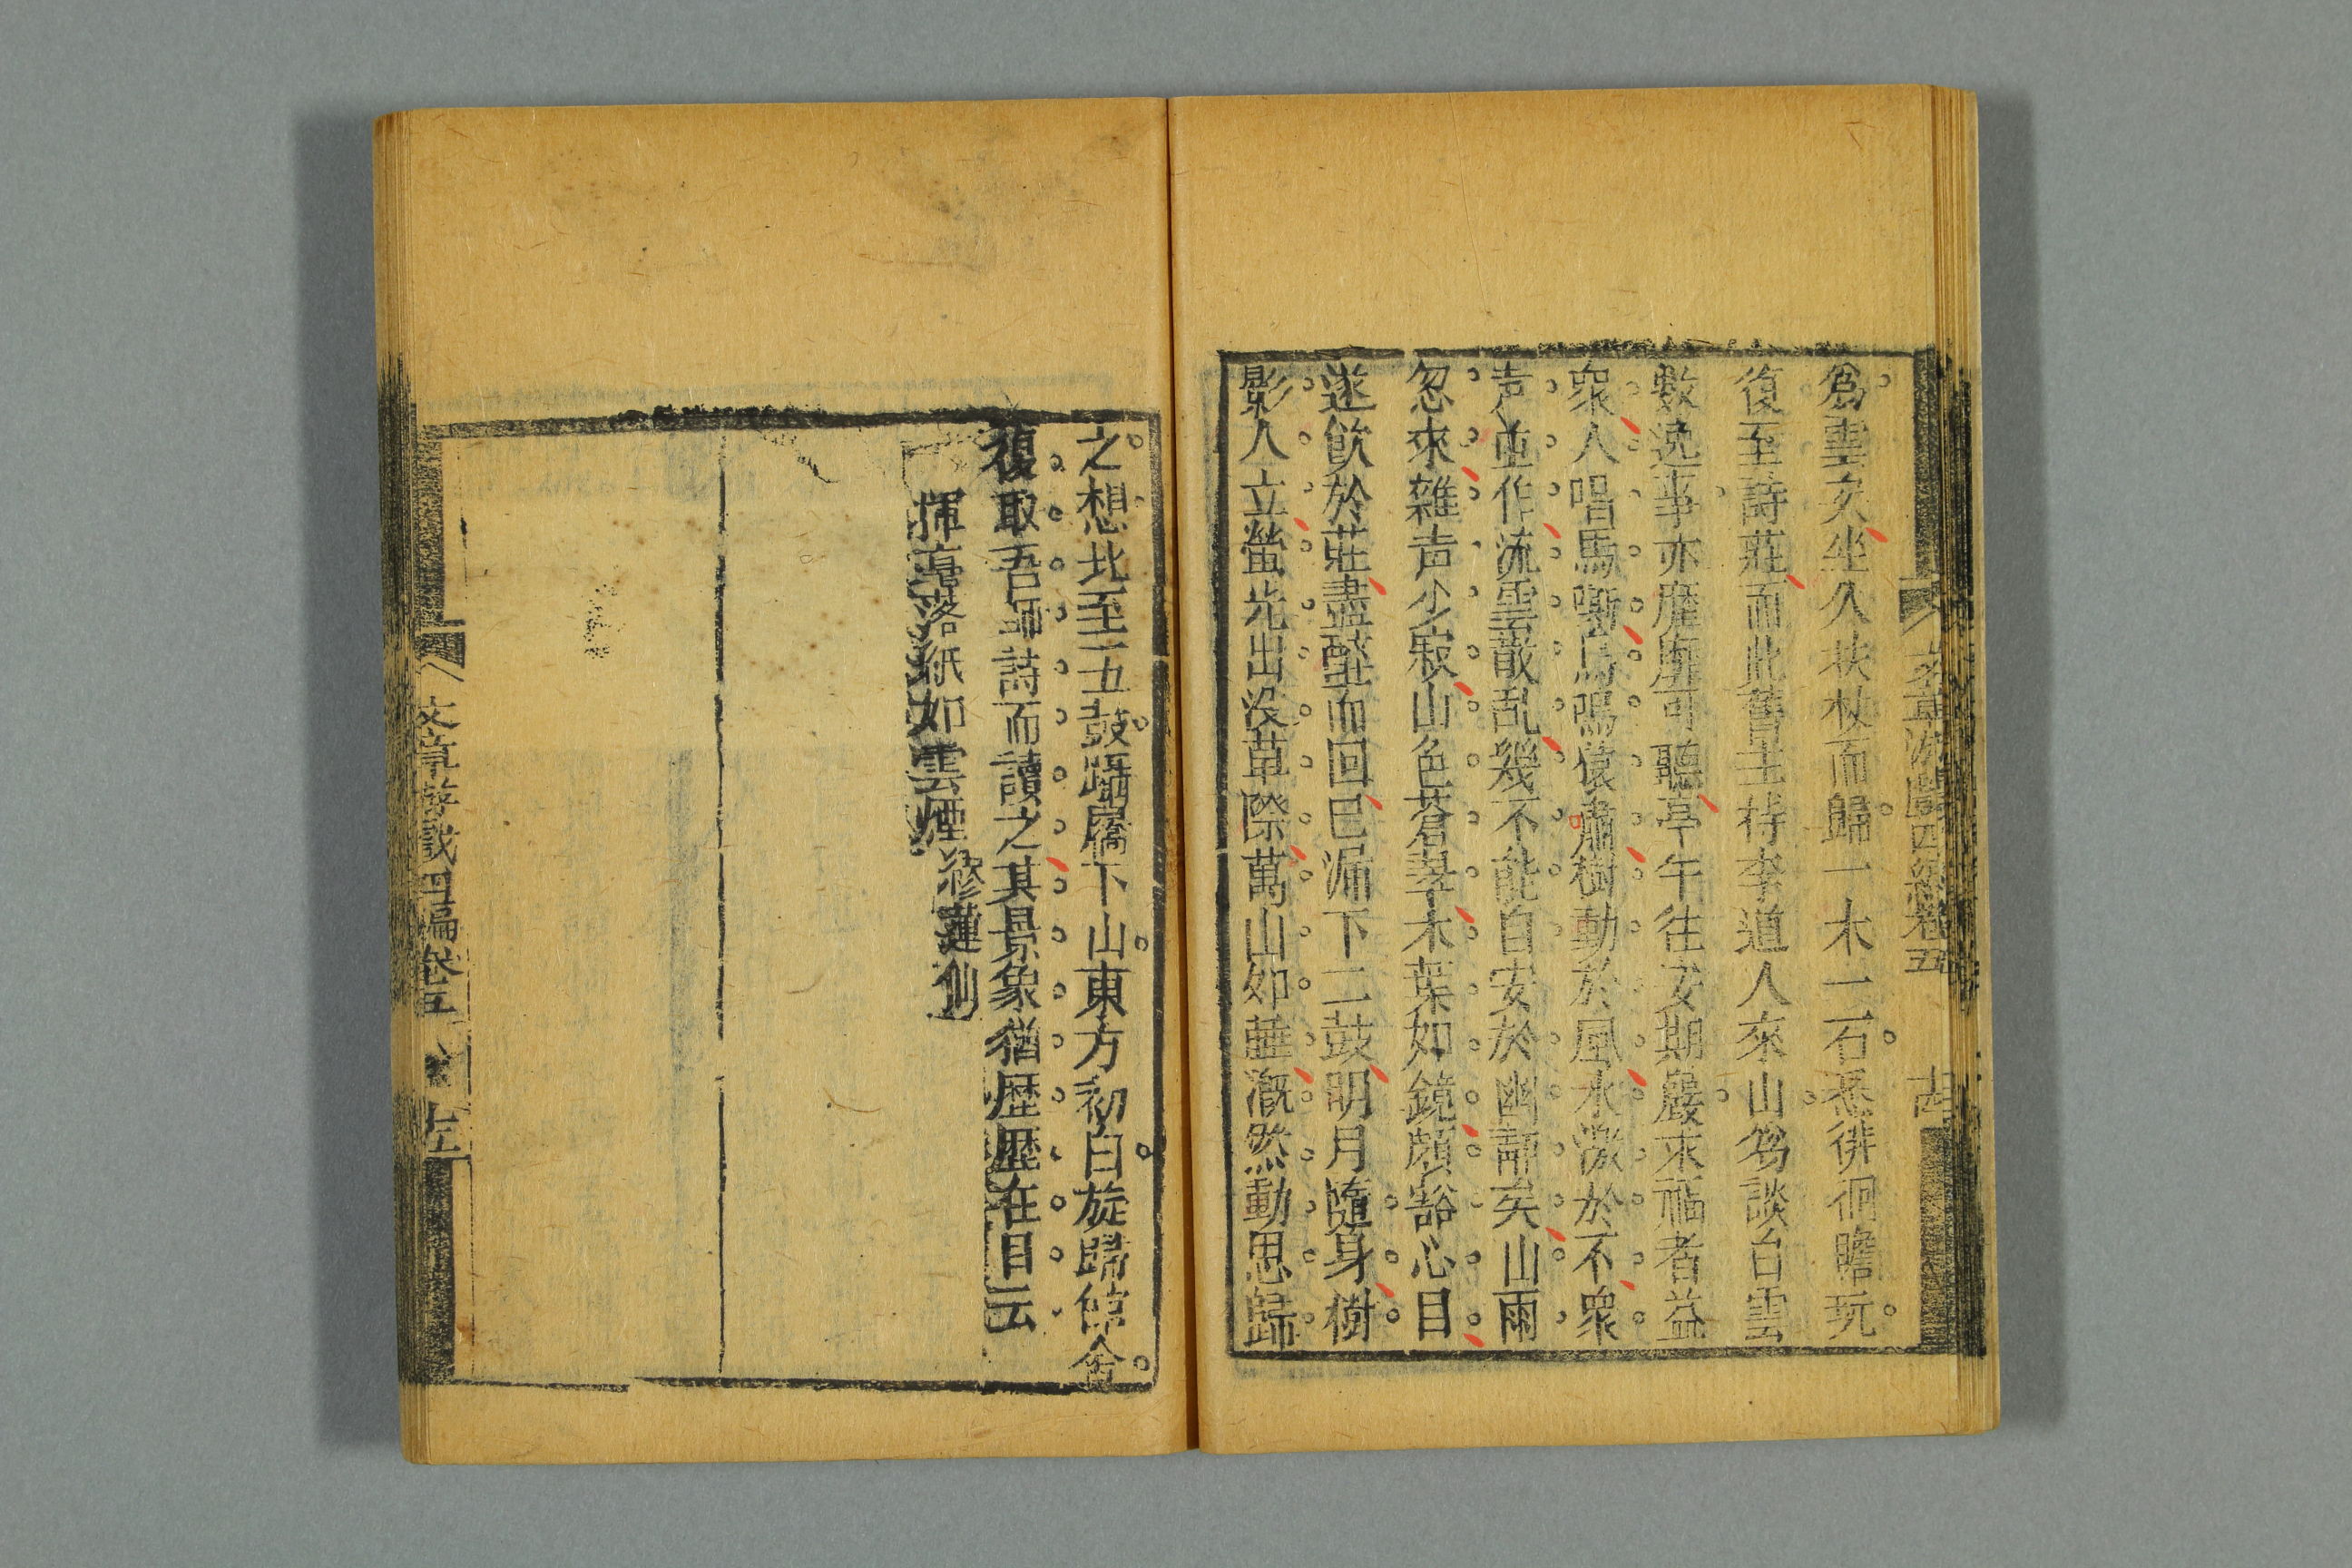 文章游戲四編卷五
為雲久坐久扶杖而歸一木一石悉徘徊瞻玩
復至詩莊而此舊主待李道人來山為談台雲
數逸事亦歷歷可聽亭午往安期巖求福者益
衆人唱馬嘶鳥鳴猿肅樹動於風水激於不衆
声並作流雲散乱幾不能自安於幽靜矣山雨
忽來雜声少寂山色蒼翠木葉如鏡頗豁心目
遂飲於莊盡醉而回已漏下二鼓明月隨身樹
影人立螢光出没草際萬山如睡漑然動思歸
之想北至五鼓躡屩下山東方初白旋歸館舍
復取吾師詩而讀之其景象猶歴歴在目云
揮毫落紙如雲煙 繆蓮仙
文章游戲四編卷五